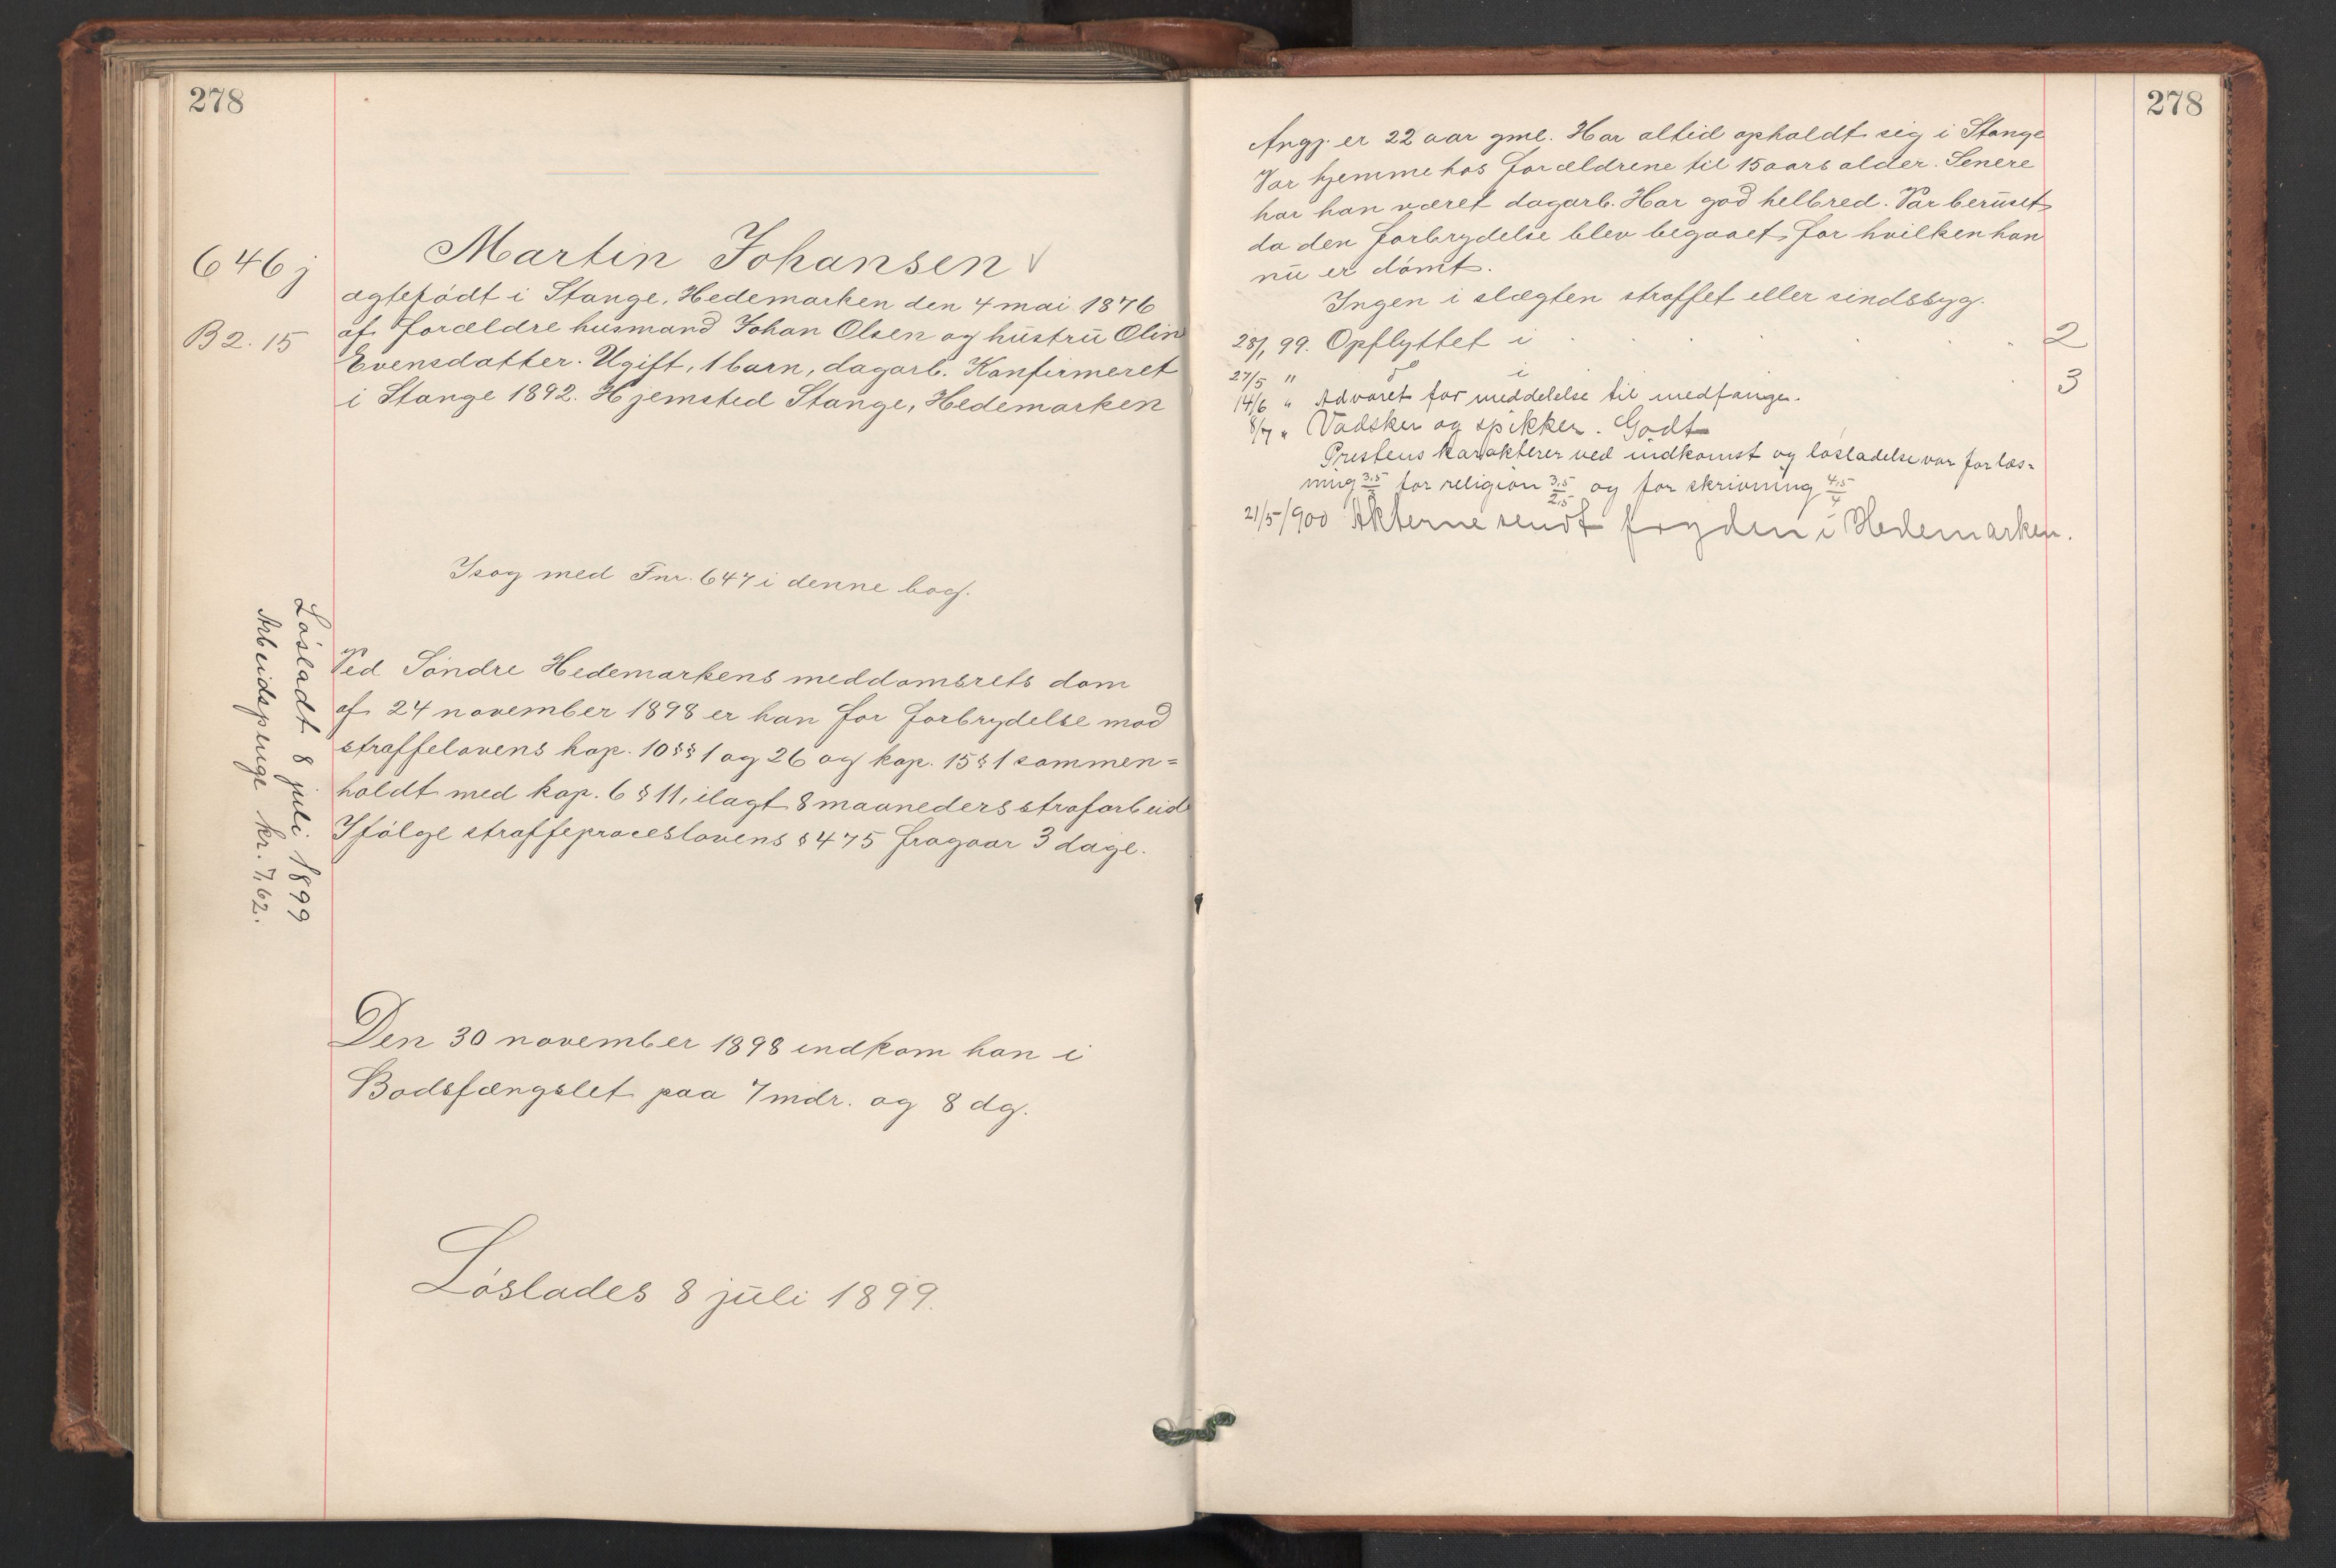 278
646 j
B 2. 15
Martin Johansen √
ægtefødt i Stange, Hedemarken den 4 mai 1876
af forældre husmand Johan Olsen og hustru Olin
Evensdatter. Ugift, 1 barn, dagarb. Konfirmeret
i Stange 1892. Hjemsted Stange, Hedemarken
Isag med Fnr. 647 i denne bog.
Ved Søndre Hedemarkens meddomsrets dom
af 24 november 1898 er han for forbrydelse mod
straffelovens kap. 10 §§ 1 og 26 og kap. 15 § 1 sammen=
holdt med kap. 6 § 11, ilagt 8 maaneders strafarbeid
Ifølge straffeproceslovens § 475 fragaar 3 dage.
Løsladt 8 juli 1899
Arbeidspenge kr. 7,62.
Den 30 november 1898 indkom han i
Bodsfængslet paa 7 mdr. og 8 dg.
Løslades 8 juli 1899.
278
Angj. er 22 aar gml. Har altid opholdt sig i Stange
Var hjemme hos forældrene til 15 aars alder. Senere
har han været dagarb. Har god helbred. Var beruset
da den forbrydelse blev begaaet, for hvilken han
nu er dømt.
Ingen i slægten straffet eller sindssyg.
28/1 99. Opflyttet i . . . . 2
27/5 " do i . 3
14/6 " Advaret for meddelelse til medfange.
8/7 " Vadsker og spikker. Godt
Prestens karakterer ved indkomst og løsladelse var for læs=
ning 3,5/3 for religion 3,5/2,5 og for skrivning 4,5/4
21/5/900 Akterne sendt fogden i Hedemarken.